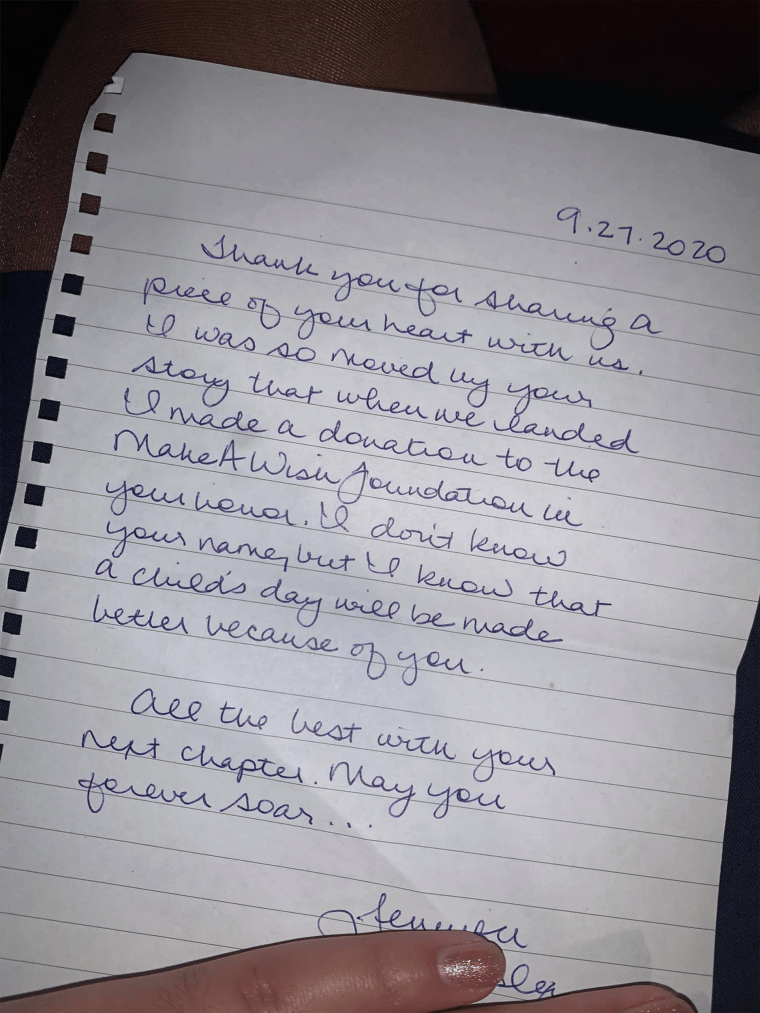 9.27.2020
Thank you for sharing a
piece of your heart with us.
I was so moved by your
story that when we landed
I made a donation to the
Make A Wish Foundation in
your honor. I don't know
your name, but I know that
a child's day will be made
better because of you.
All the best with your
next chapter. May you
forever soar...